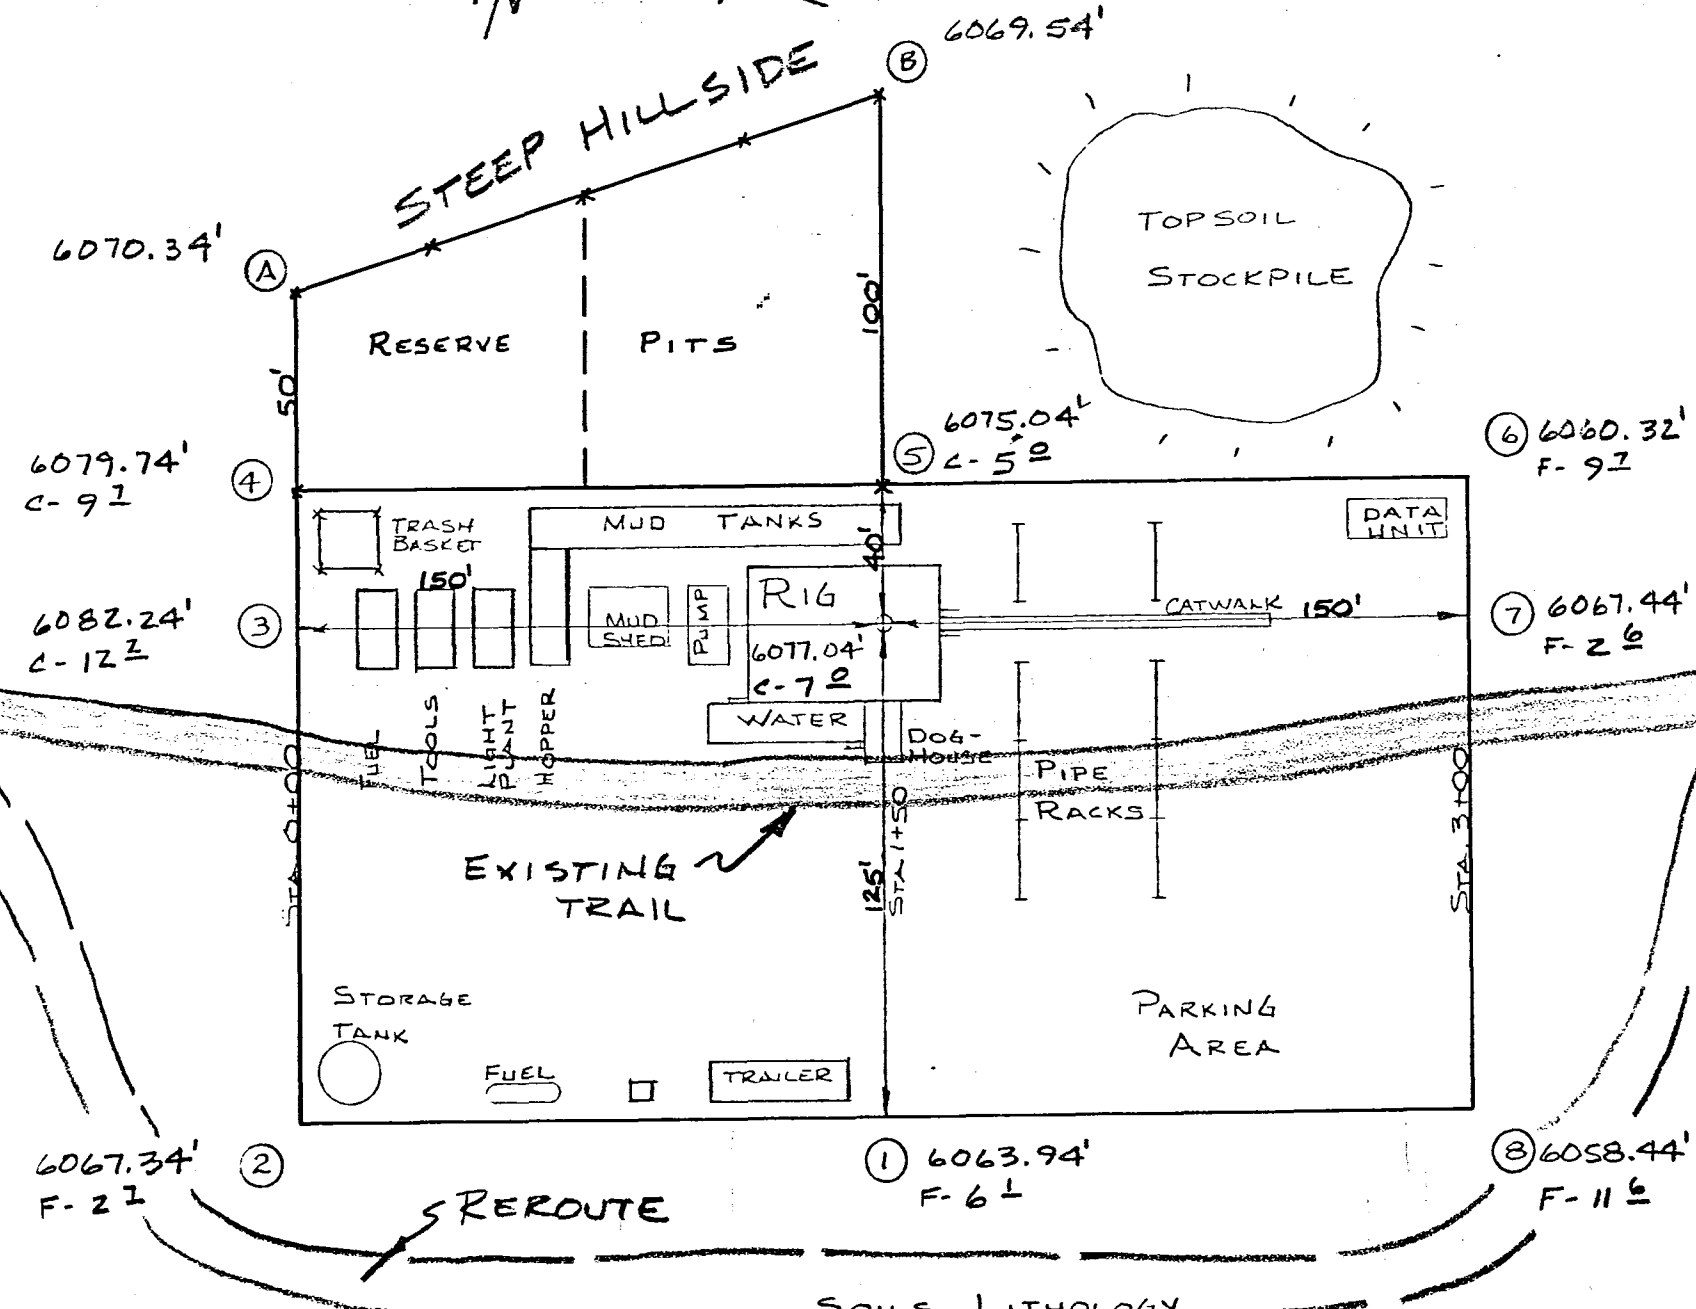 6069.54'
B
STEEP HILLSIDE
6070.34'
A
TOPSOIL
STOCKPILE
100'
RESERVE PITS
50'
6079.74'
C- 9 7
4
6075.04'
5
C- 5 0
6 6060.32'
F- 9 7
TRASH
BASKET
MUD TANKS
40'
DATA
UNIT
150'
RIG
CATWALK 150'
6082.24'
C- 12 2
3
MUD
SHED
PUMP
6077.04'
C- 7 0
7 6067.44'
F- 2 6
FUEL
TOOLS
LIGHT
PLANT
HOPPER
WATER
DOG-
HOUSE
PIPE
RACKS
STA. 0+00
STA 1+50
STA. 3+00
125'
EXISTING
TRAIL
STORAGE
TANK
FUEL
TRAILER
PARKING
AREA
6067.34'
F- 2 7
2
1 6063.94'
F- 6 1
8 6058.44'
F- 11 6
REROUTE
SOILS LITHOLOGY